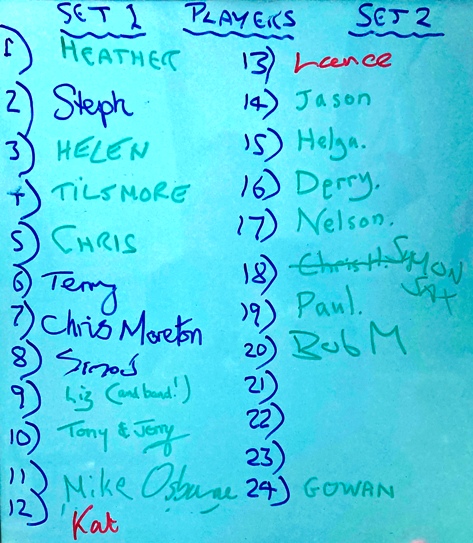 SET 1 PLAYERS SET 2
1) HEATHER
2) Steph
3) HELEN
4) TILSMORE
5) CHRIS
6) Terry
7) Chris Moreton
8)
9) Liz (and band!)
10) Tony & Jerry
11) Mike Osborne
12) Kat
13) Lance
14) Jason
15) Helga.
16) Derry.
17) Nelson.
18) Chris H. SYMON SAX
19) Paul.
20) Bob M
21)
22)
23)
24) GOWAN